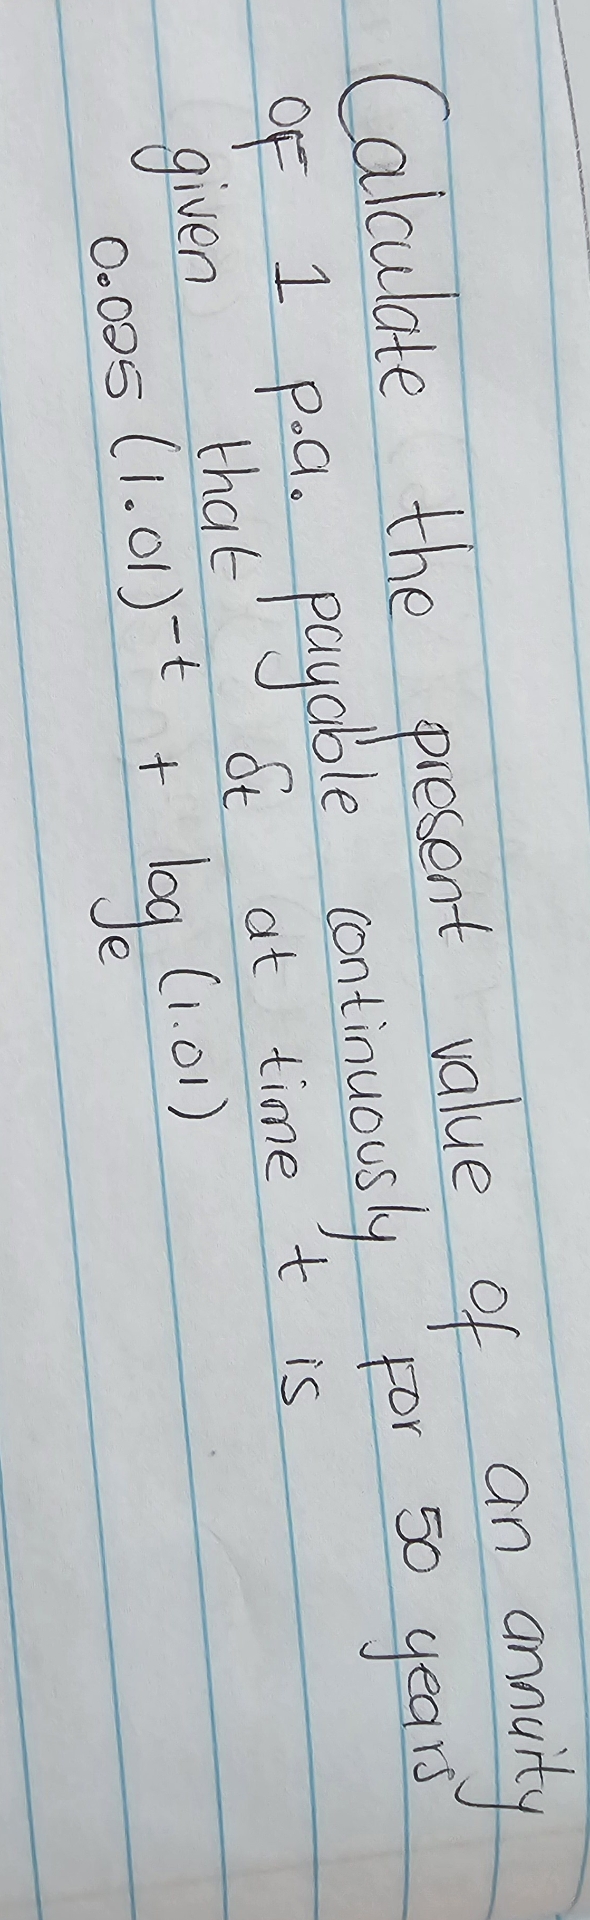 Calculate the present value of an annuity
of 1 p.a. payable continuously for 50 years
given that δt at time t is
0.025 (1.01)^-t + log_e (1.01)